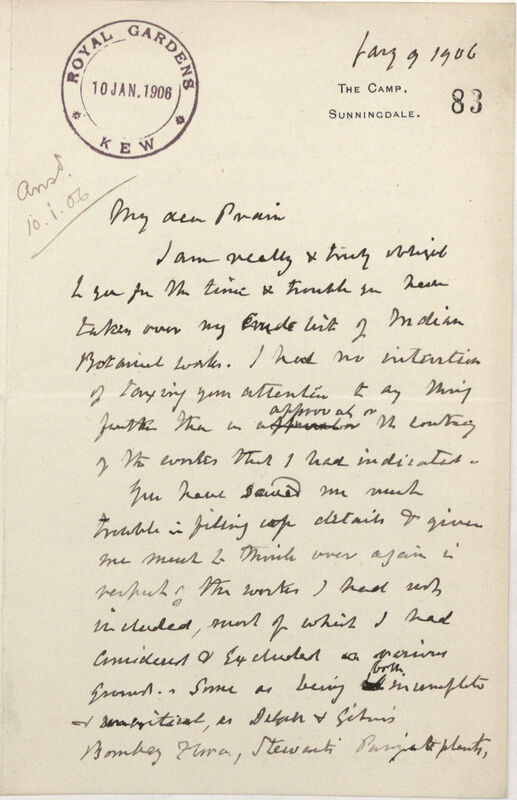 ROYAL GARDENS
10 JAN. 1906
KEW
Jany 9 1906
THE CAMP,
SUNNINGDALE.
83
Ansd.
10.1.06
My dear Prain
I am really & truly obliged
to you for the time & trouble you have
taken over my crude list of Indian
Botanical works. I had no intention
of taxing your attention to any thing
further than an approval or the contrary
of the works that I had indicated.
You have saved me much
trouble in filing up details & given
me much to think over again in
respect of the works I had not
included, most of which I had
considered & excluded on various
grounds. Some as being both incomplete
& uncritical, as Dalzell & Gibson's
Bombay Flora, Stewart's Punjab plants,